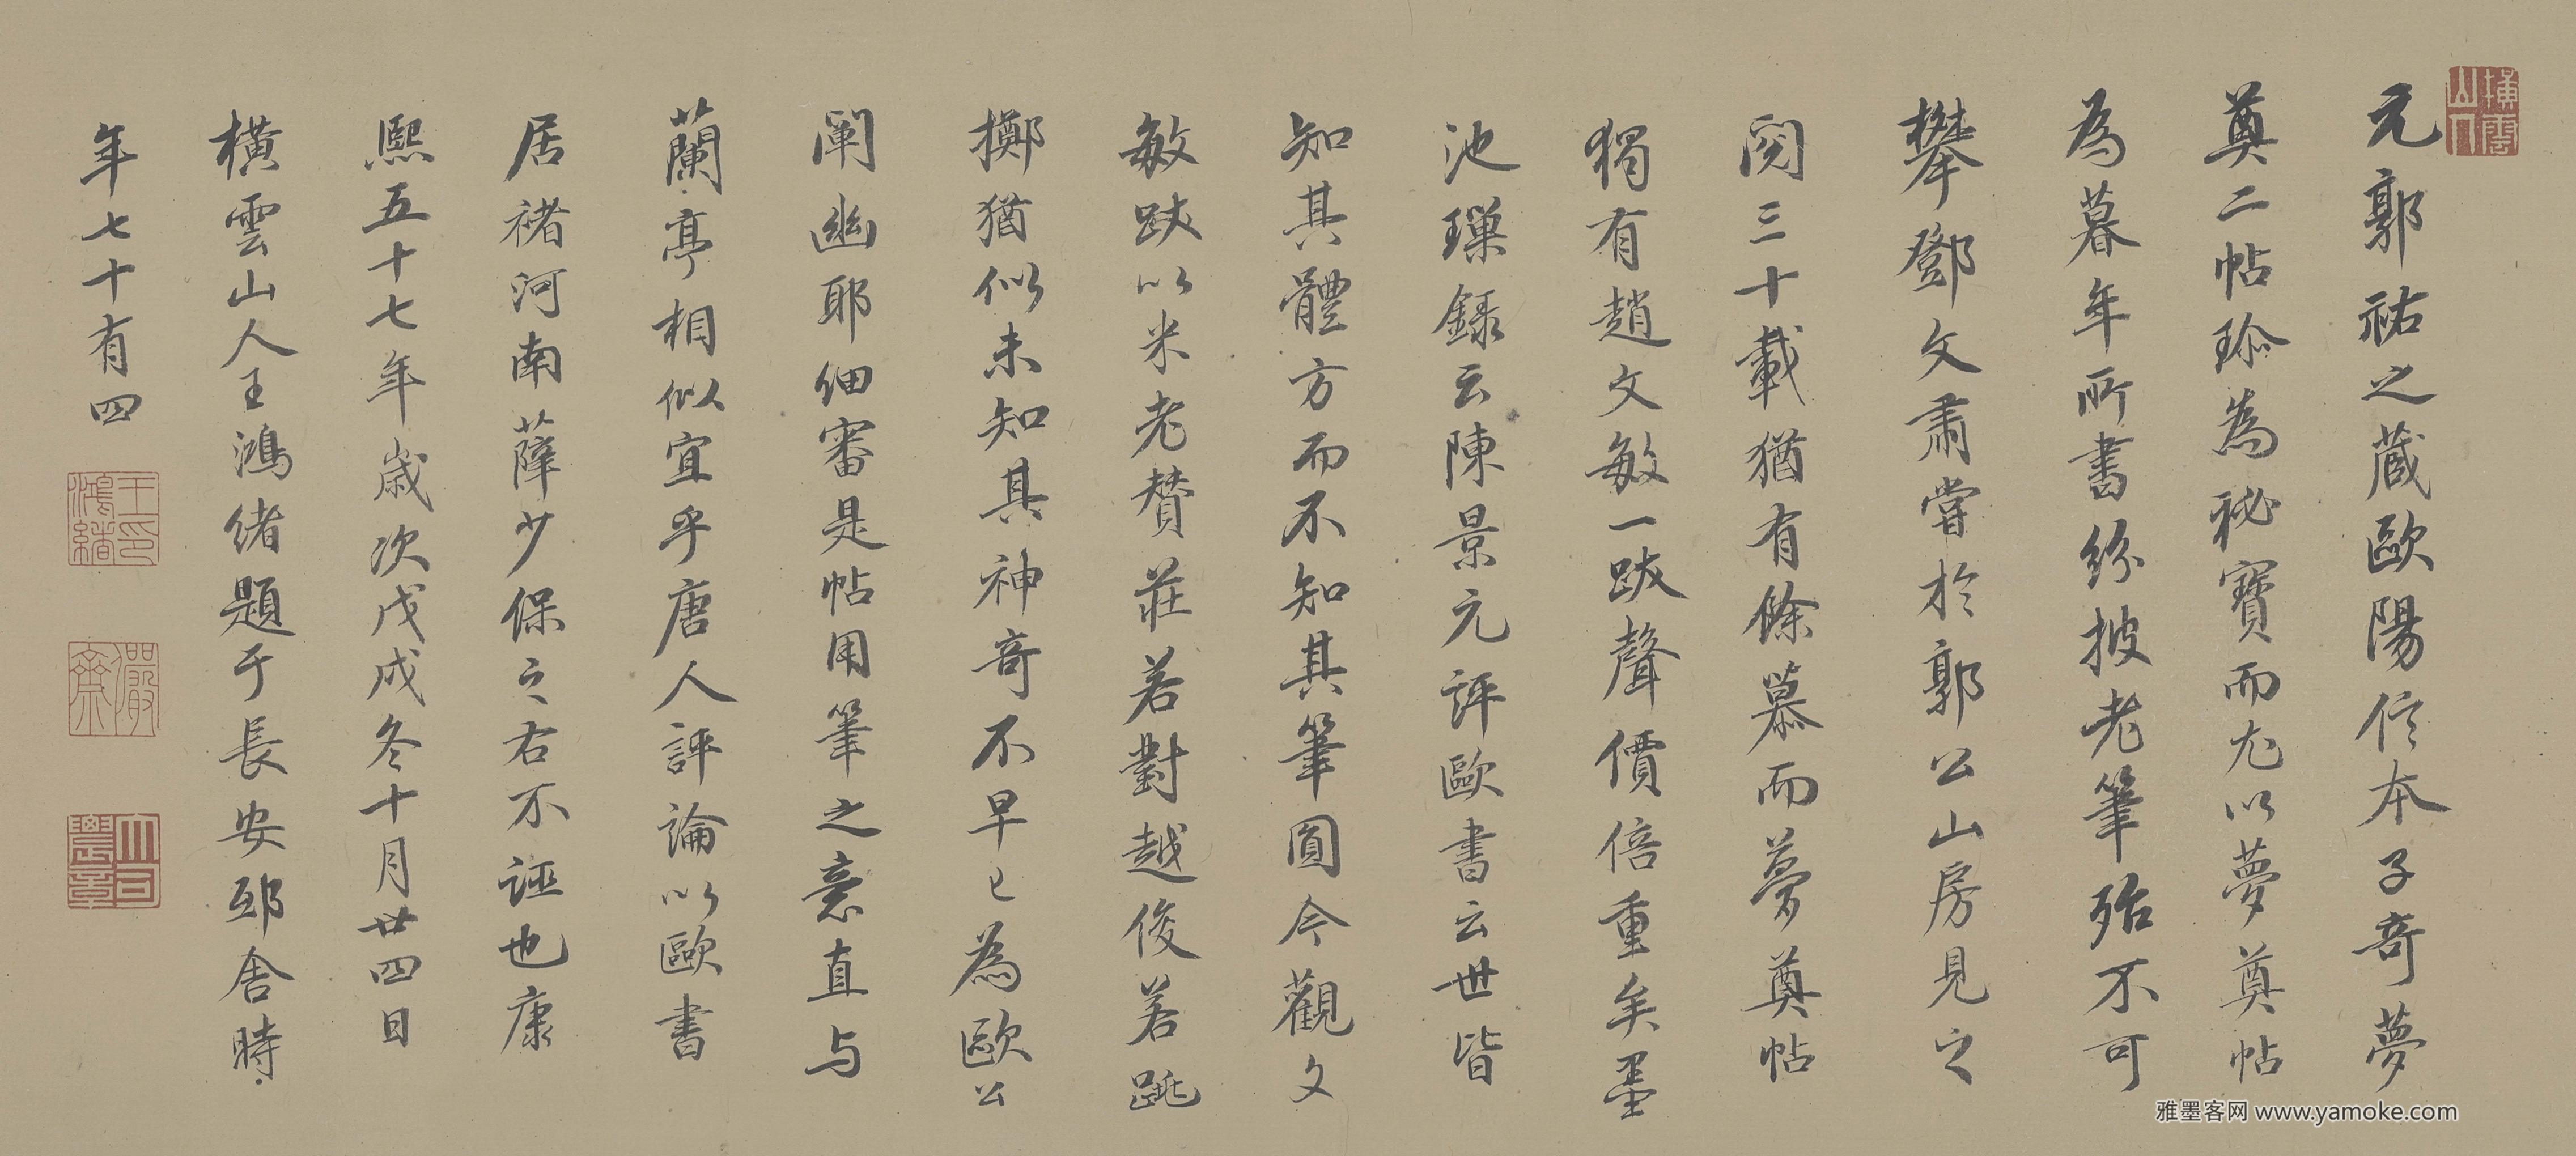 橫雲山人
元郭祐之蔵歐陽信本子奇夢
奠二帖珎為秘寶而尤以夢奠帖
為暮年所書紛披老筆殆不可
攀鄧文肅嘗於郭公山房見之
閱三十載猶有餘慕而夢奠帖
獨有趙文敏一跋聲價倍重矣墨
池璅録云陳景元評歐書云世皆
知其體方而不知其筆圓今觀文
敏跋以米老賛莊若對越俊若跳
擲猶似未知其神奇不早已為歐公
闡幽耶細審是帖用筆之意直与
蘭亭相似宜乎唐人評論以歐書
居褚河南薛少保之右不誣也康
熙五十七年歲次戊戌冬十月廿四日
橫雲山人王鴻緒題于長安邸舍時
年七十有四
王印鴻緒
儼齋
大司農章
雅墨客网 www.yamoke.com